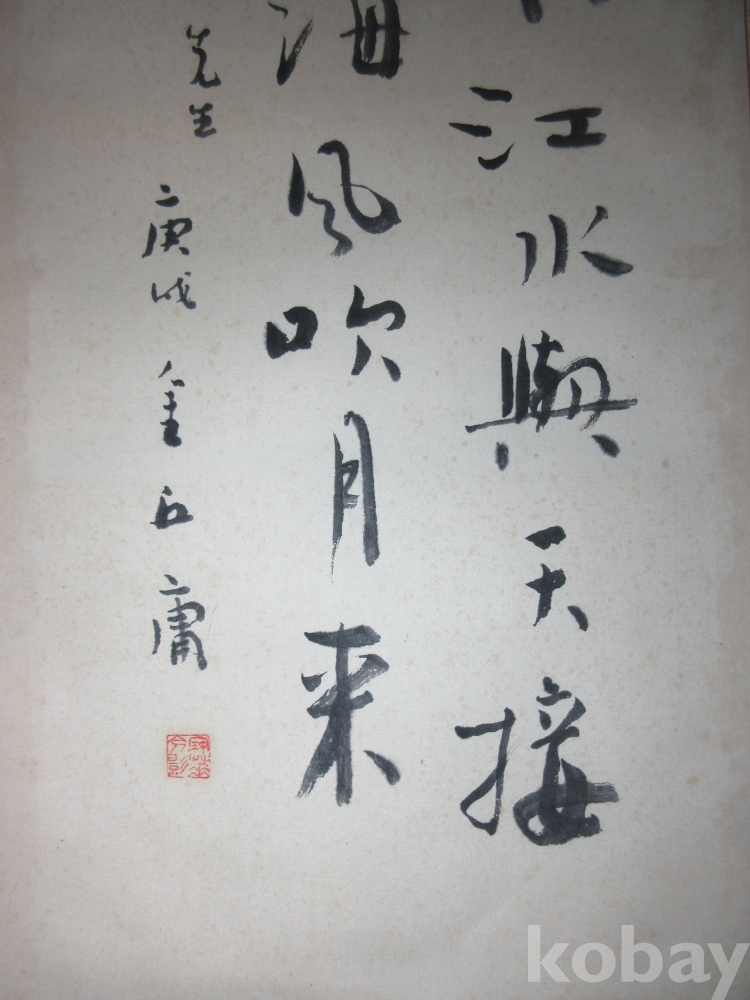 江水與天接
海風吹月来
先生
庚戌 金丘庸
kobay